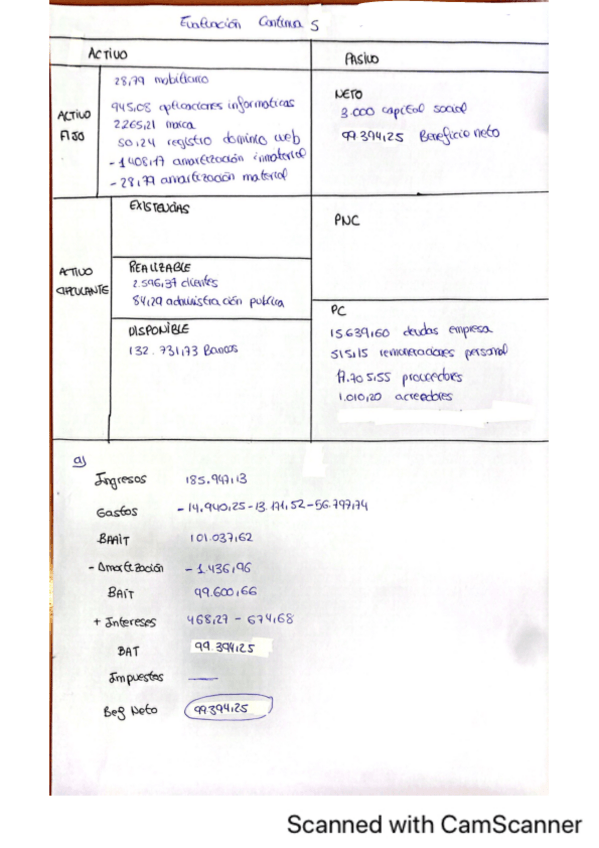 Evaluación Continua 5
ACTIVO
PASIVO
ACTIVO
FIJO
28,79 mobiliario
945,08 aplicaciones informaticas
2.265,21 marca
50,24 registro dominio web
- 1.408,17 amortización inmaterial
- 28,79 amortización material
NETO
3.000 capital social
99.394,25 Beneficio neto
ACTIVO
CIRCULANTE
EXISTENCIAS
REALIZABLE
2.596,37 clientes
84,29 administración publica
DISPONIBLE
132.731,73 Bancos
PNC
PC
15.639,60 deudas empresa
515,15 remuneraciones personal
17.705,55 proveedores
1.010,20 acreedores
a)
Ingresos 185.947,13
Gastos - 14.940,25 - 13.171,52 - 56.797,74
BAAIT 101.037,62
- Amortización - 1.436,96
BAIT 99.600,66
+ Intereses 468,27 - 674,68
BAT 99.394,25
Impuestos —
Bef Neto 99394,25
Scanned with CamScanner